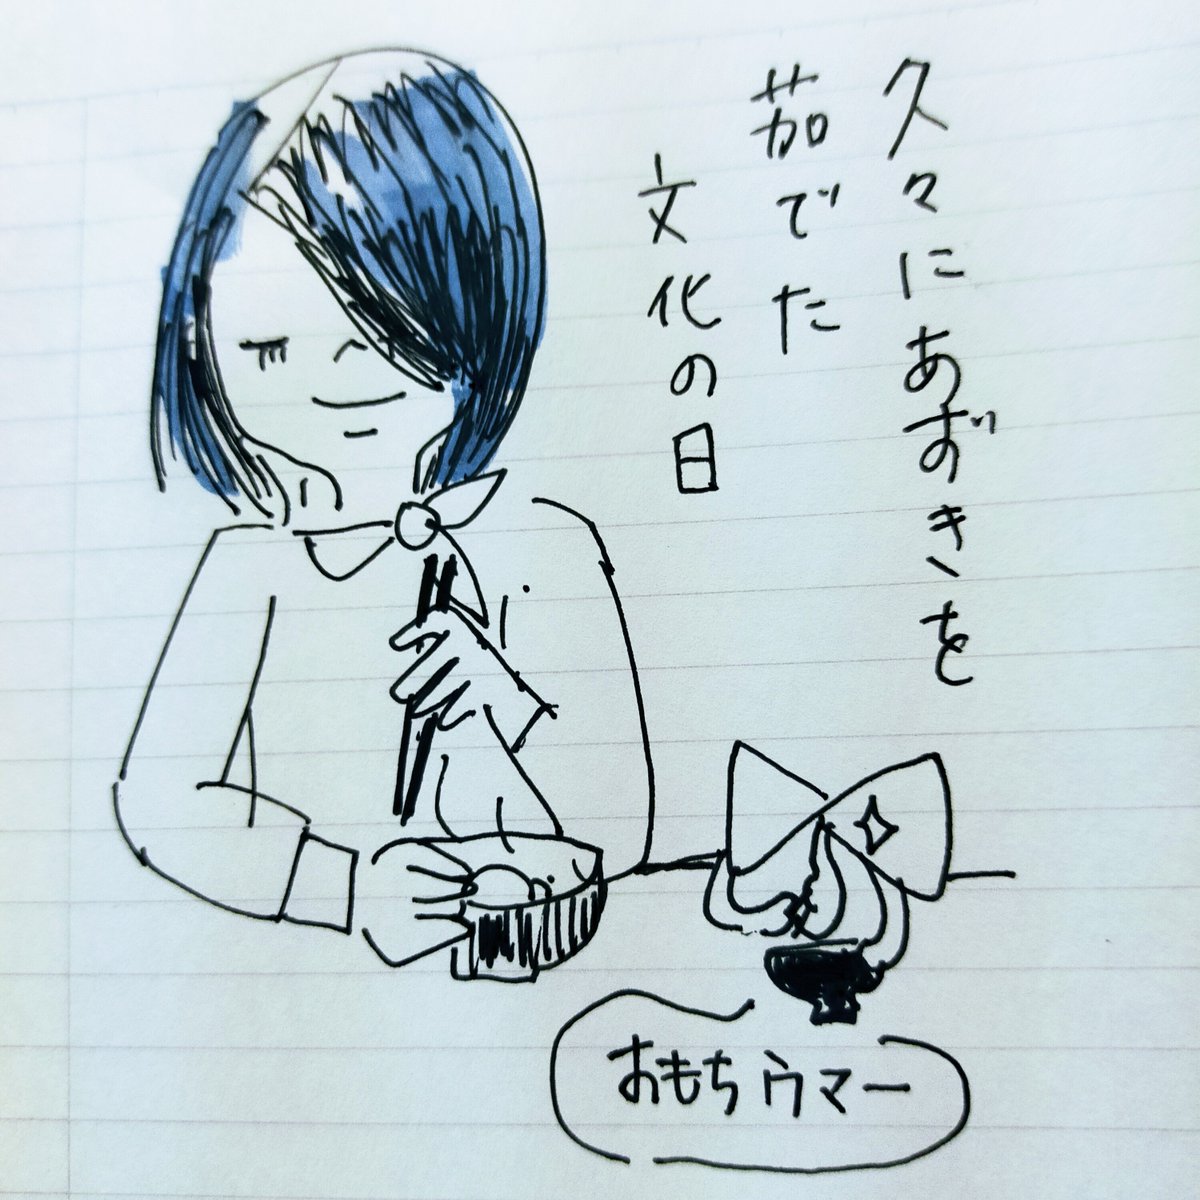 久々にあずきを
茹でた
文化の日
おもちウマー